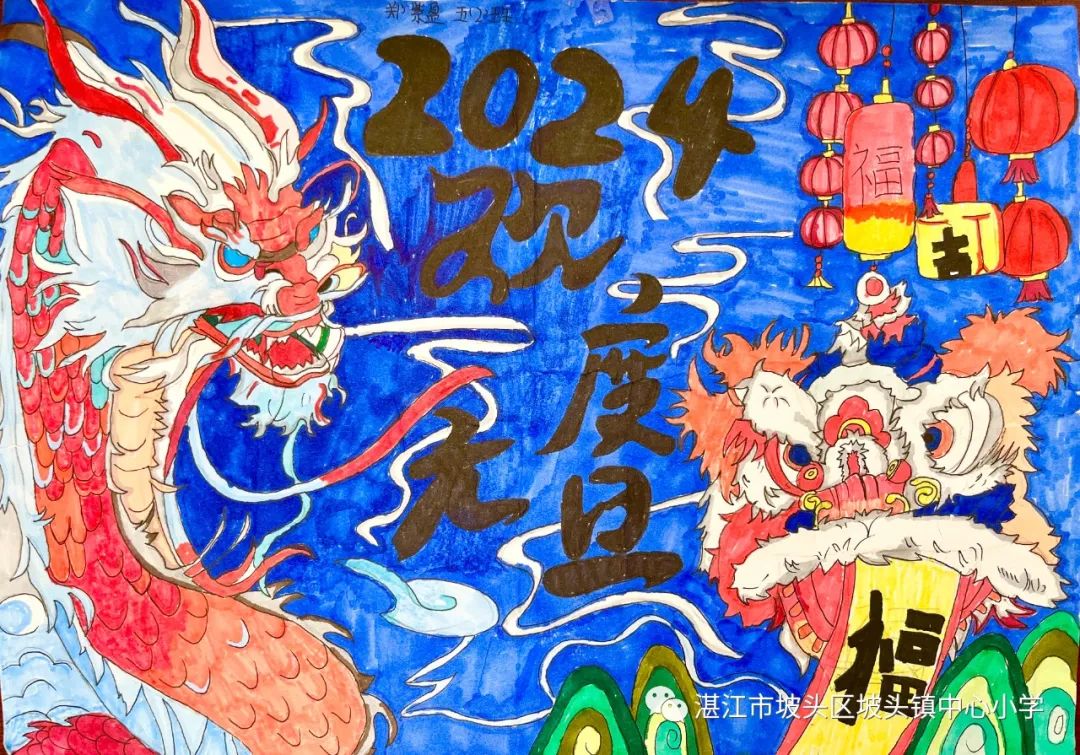 郑紫盈 五(2)班
2024
欢度
元旦
福
吉
福
湛江市坡头区坡头镇中心小学